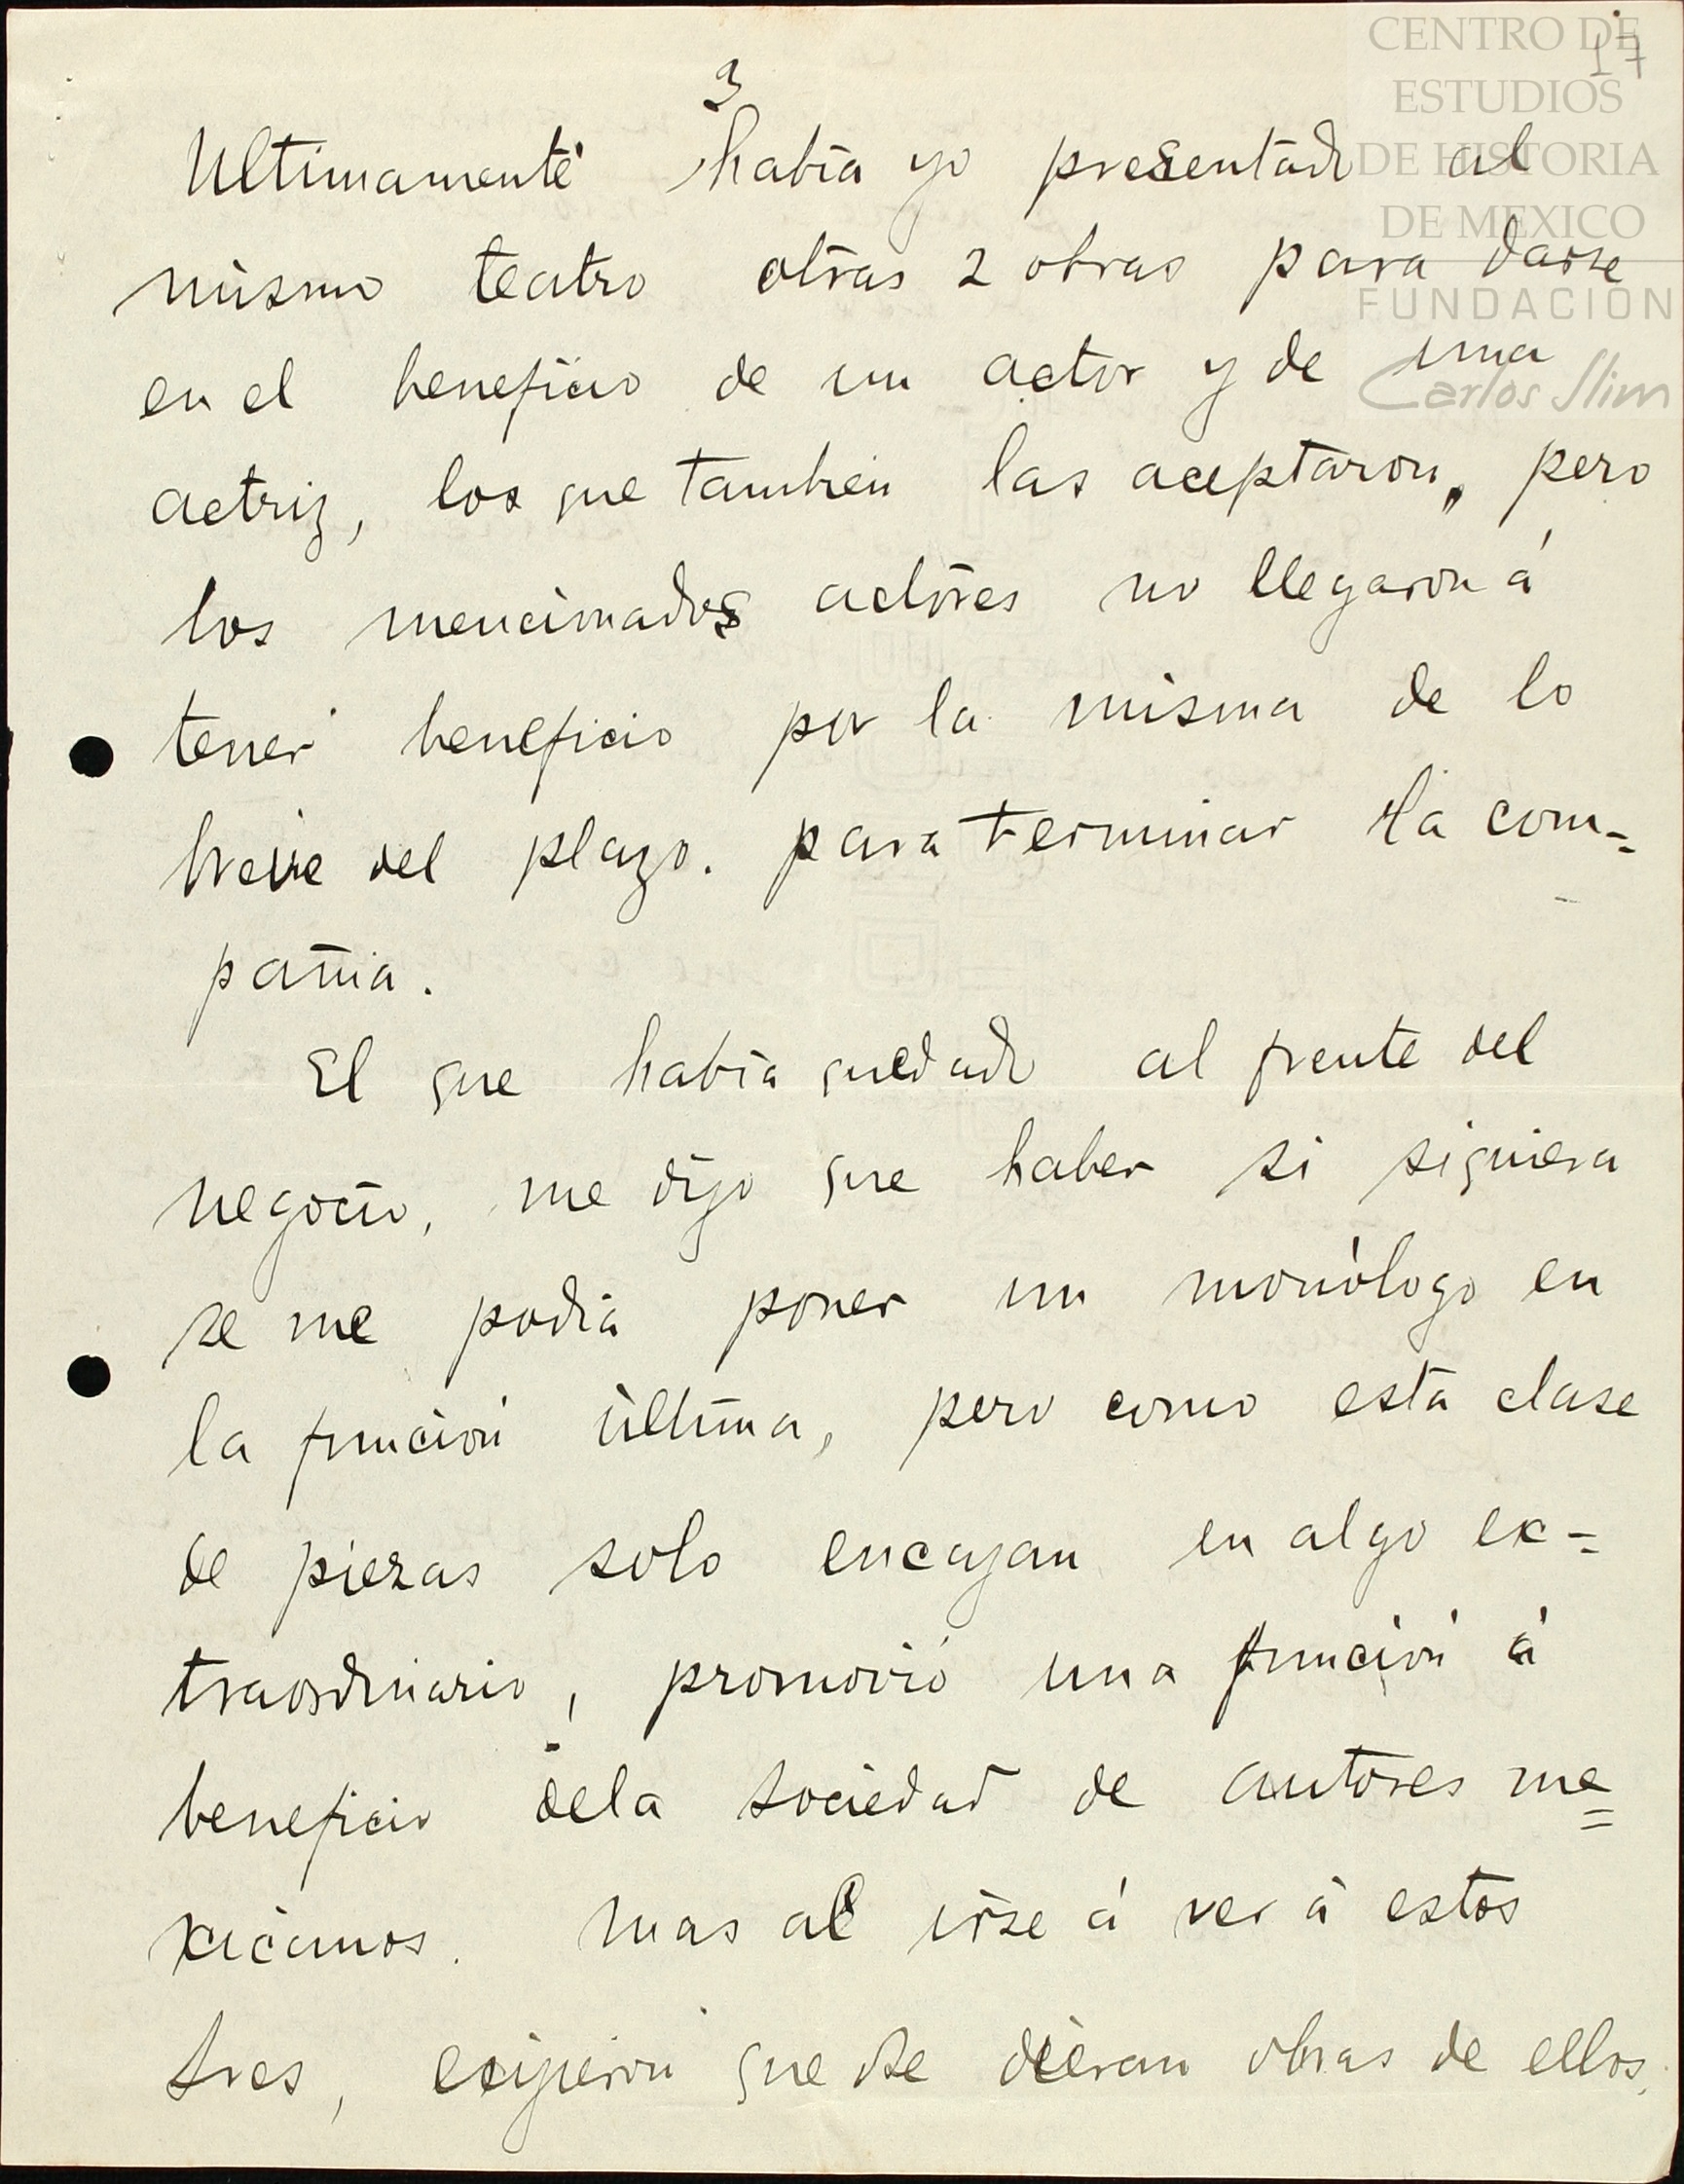 CENTRO DE
ESTUDIOS
DE HISTORIA
DE MEXICO
FUNDACIÓN
Carlos Slim
17
3
Ultimamente había yo presentado al
mismo teatro otras 2 obras para darse
en el beneficio de un actor y de una
actriz, los que tambien las aceptaron, pero
los mencionados actores no llegaron á
tener beneficio por la misma de lo
breve del plazo. para terminar la com=
pañia.
El que había quedado al frente del
negocio, me dijo que haber si siquiera
se me podia poner un monólogo en
la función última, pero como esta clase
de piezas solo encajan en algo ex=
traordinario, promovió una función á
beneficio dela sociedad de autores me=
xicanos. mas al irse á ver á estos
tres, exigieron que se dieran obras de ellos.